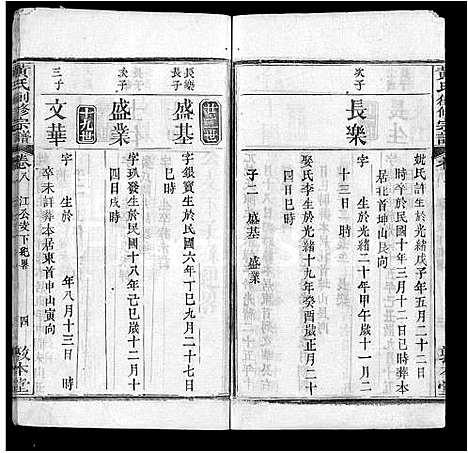 黃氏創修宗譜
敦本堂
妣氏許生於光緒戊子年五月二十二日
時卒於民國十年三月十二日巳時葬本
居北首坤山艮向
次子
長樂
字 生於光緒二十年甲午歲十一月二
十三日 時
娶氏李生於光緒十九年癸酉歲正月二十
日 時
子二 盛基 盛業
長樂長子
盛基
字銀寶生於民國六年丁巳九月二十七日
巳時
次子
盛業
字 發生於民國十八年己巳歲十二月十
四日戌時
十九世
三子
文華
字 生於 年八月十三日 時
卒未詳葬本居東首申山寅向
黃氏創修宗譜
卷八
四
敦本堂